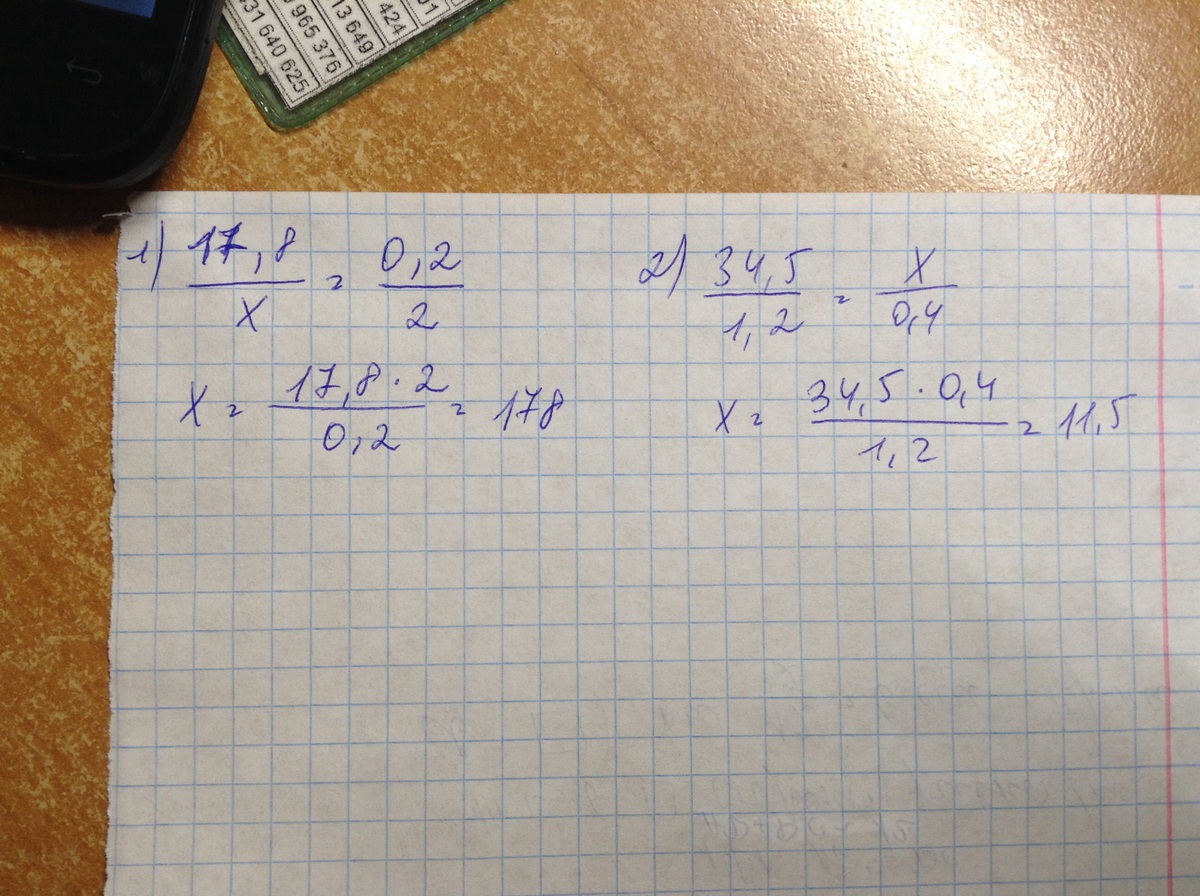 31 640 625
965 376
13 649
424
1) 17,8 / x = 0,2 / 2
x = 17,8 · 2 / 0,2 = 178
2) 34,5 / 1,2 = x / 0,4
x = 34,5 · 0,4 / 1,2 = 11,5